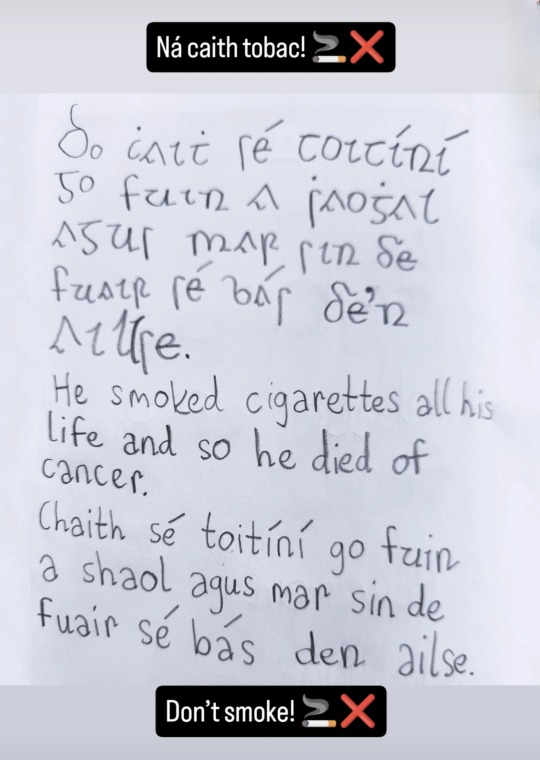 Ná caith tobac! 🚬❌
Do ċaiṫ sé toitíní
go fuin a ṡaoġal
agus mar sin de
fuair sé bás de'n
aillse.
He smoked cigarettes all his
life and so he died of
cancer.
Chaith sé toitíní go fuin
a shaol agus mar sin de
fuair sé bás den ailse.
Don't smoke! 🚬❌